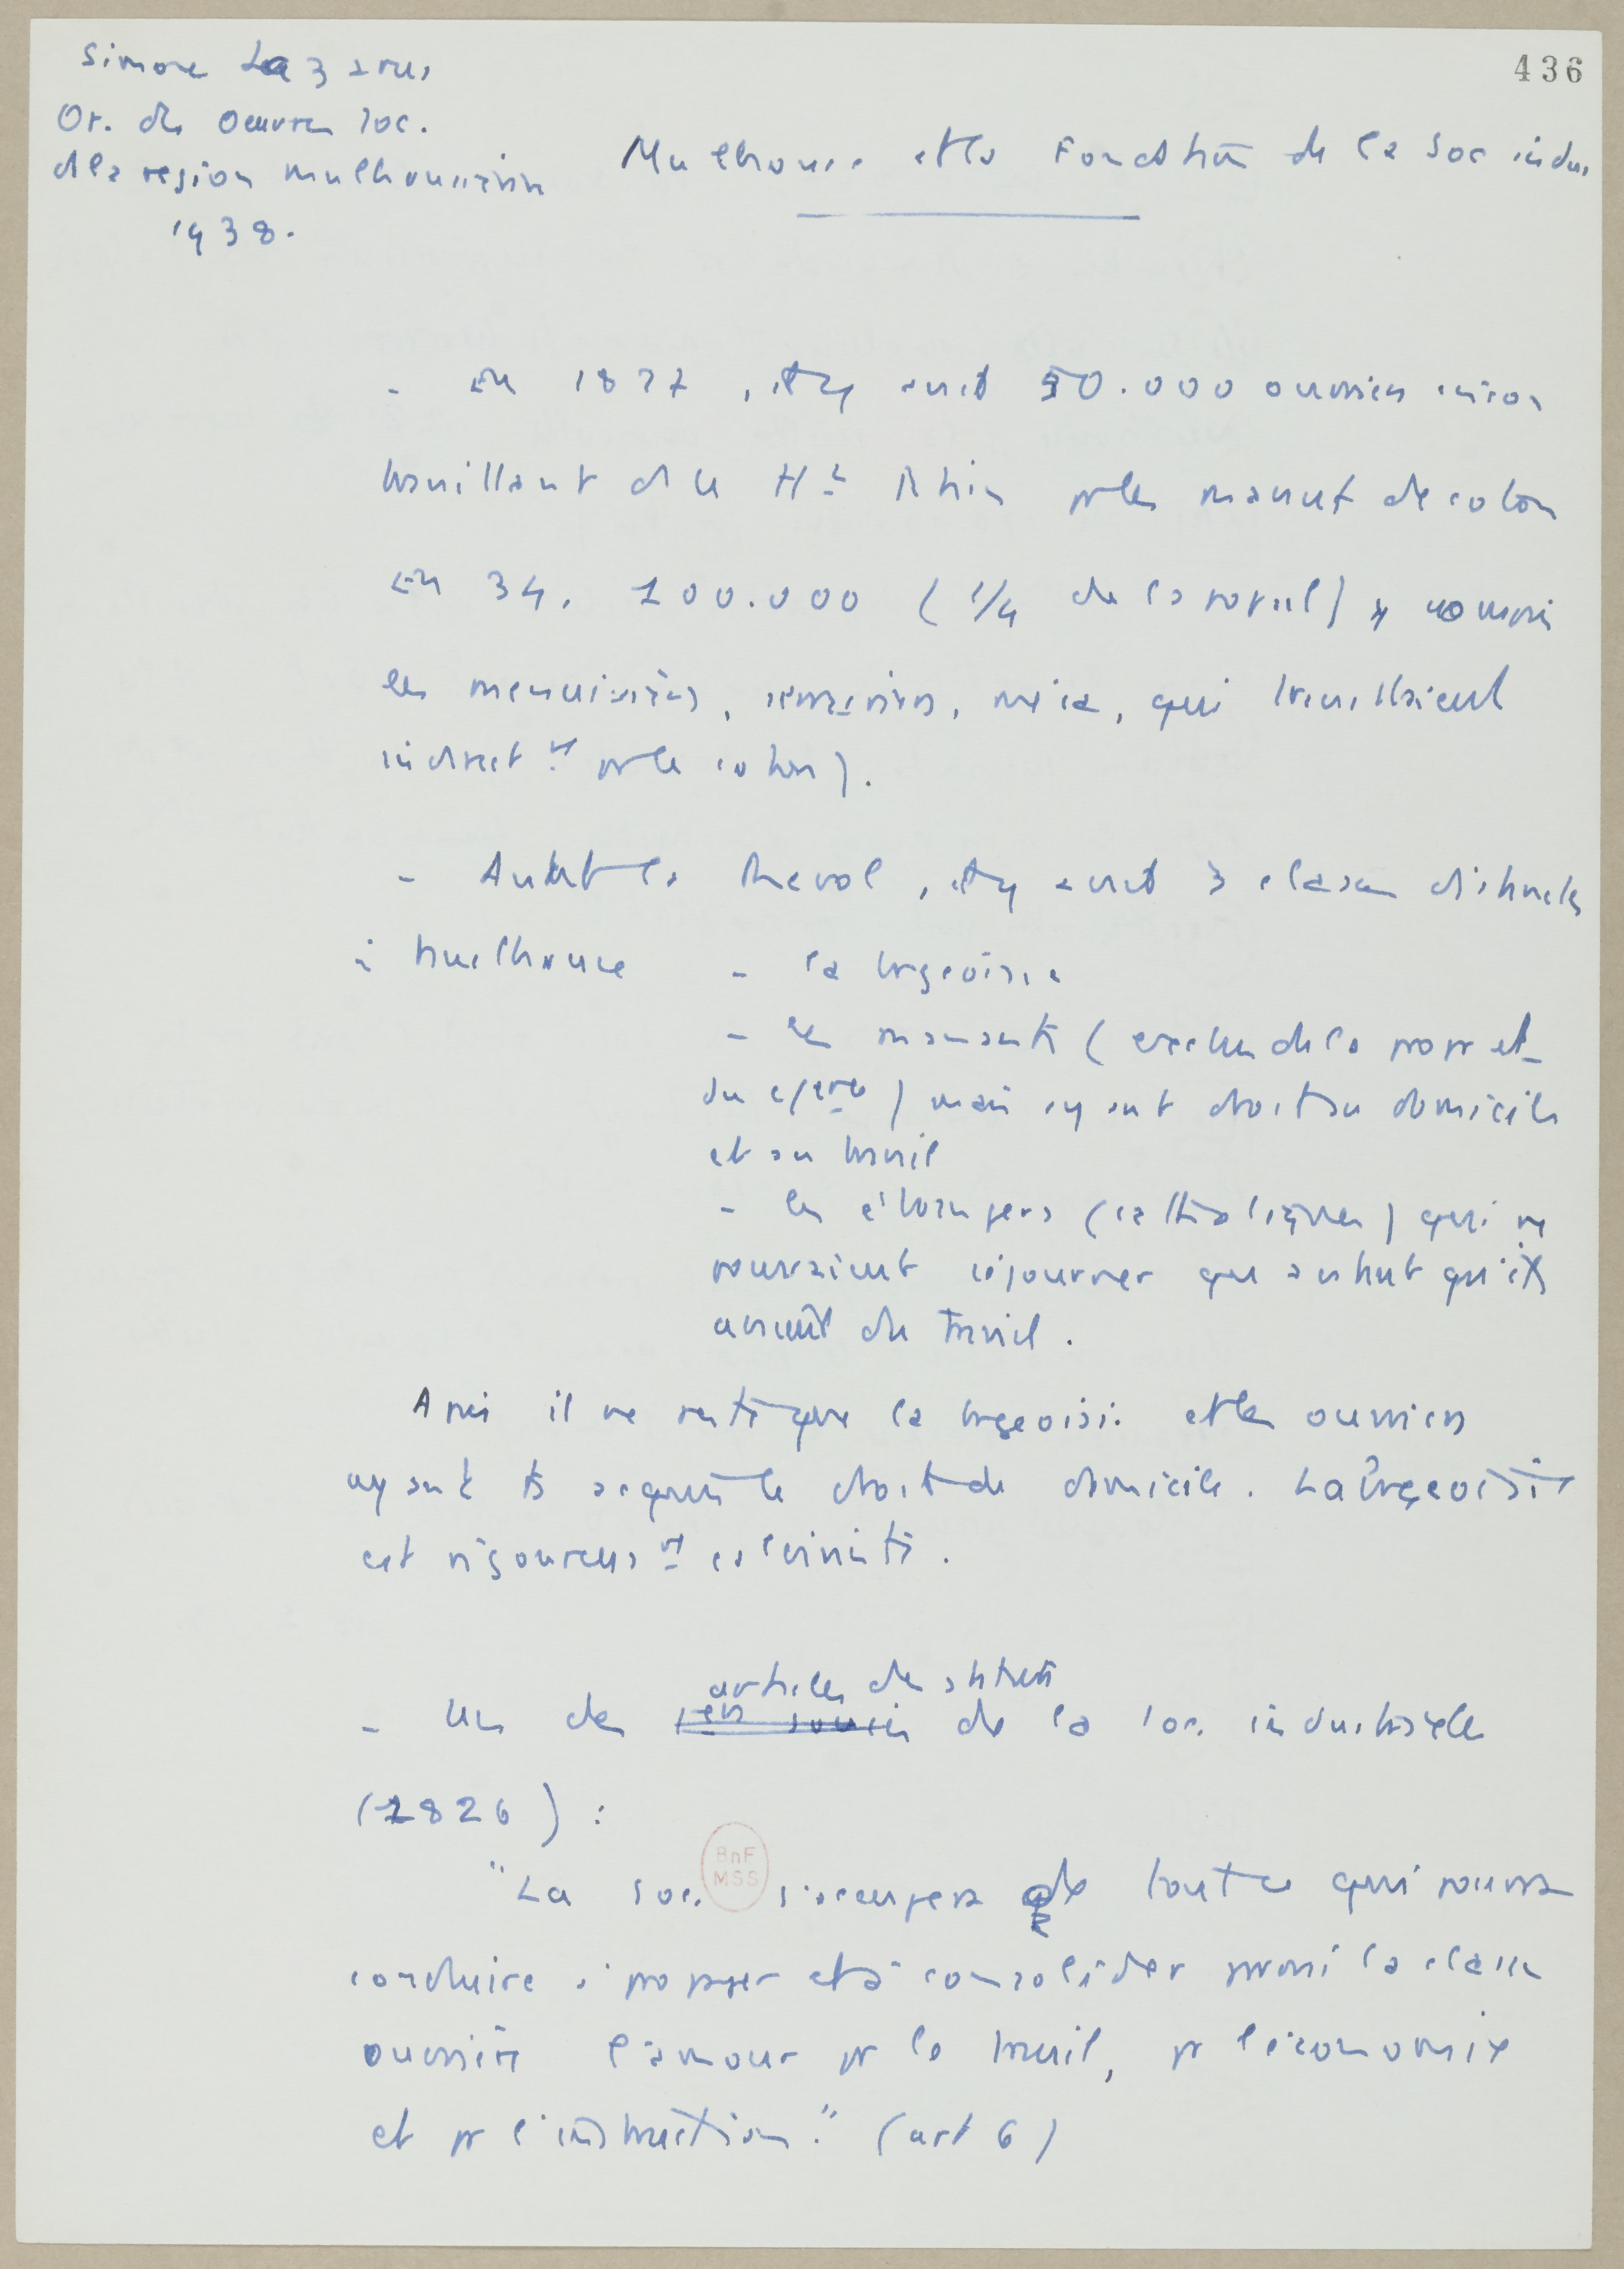 436
Simone Lazarus
Or. des Oeuvres soc.
de la region mulhousienne
1938.
Mulhouse et la Fondation de la Soc indus
- En 1827, il y avait 50.000 ouvriers
travaillant ds le Ht Rhin pr les manuf de coton
En 34, 100.000 (1/4 de la popul) y compris
les menuisiers, qui travaillaient
indirectnt pr le coton).
- Avant la Revol, il y avait 3 classes distinctes
à Mulhouse - la brgeoisie
- les manants (exclus de la propr et
du ) mais ayant droit au domicile
et au travail
- les étrangers (catholiques) qui ne
pouvaient séjourner que autant qu'ils
avaient du travail.
Apres il ne reste que la brgeoisie et les ouvriers
ayant ts acquis le droit de domicile. La brgeoisie
est rigoureusnt calviniste.
articles de statuts
- Un des de la soc. industrielle
(1826) :
"La soc. s'occupera de tout ce qui pourra
conduire à propager et à consolider parmi la classe
ouvrière l'amour pr le travail, pr l'économie
et pr l'instruction." (art 6)
BnF
MSS